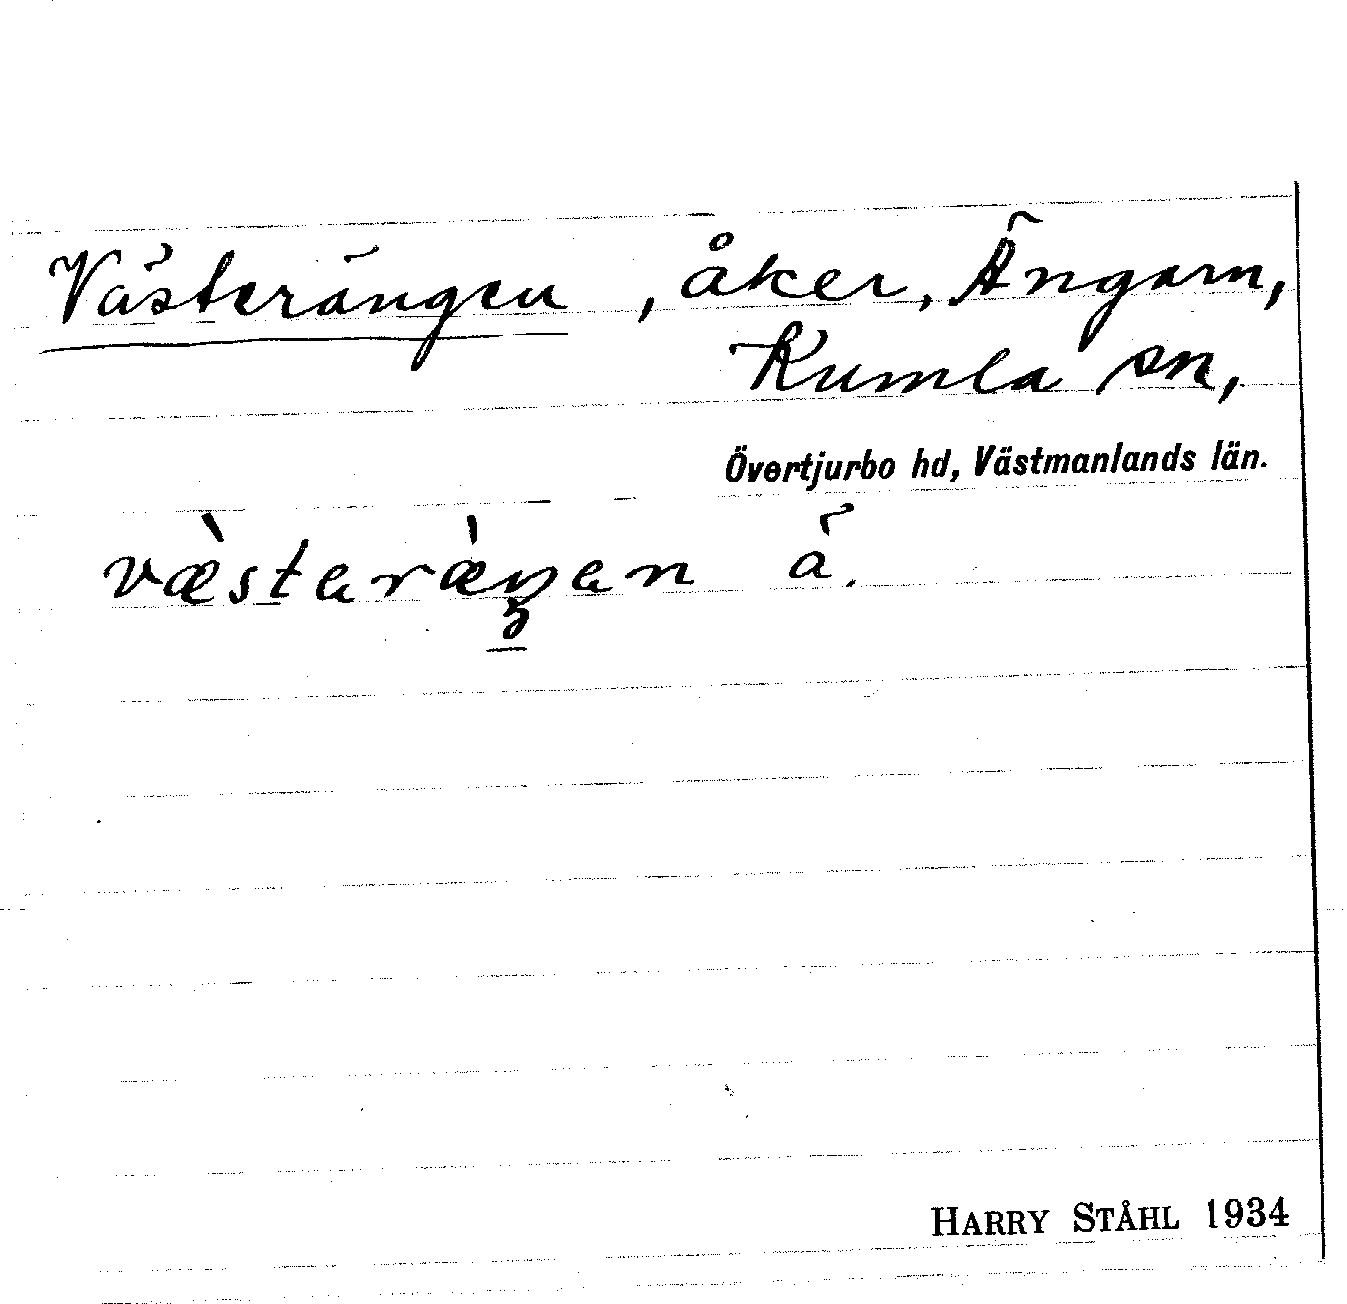 Västerängen, åker, Ängarn,
Kumla sn,
Övertjurbo hd, Västmanlands län.
væ̀steræ̀ŋen ä.
HARRY STÅHL 1934